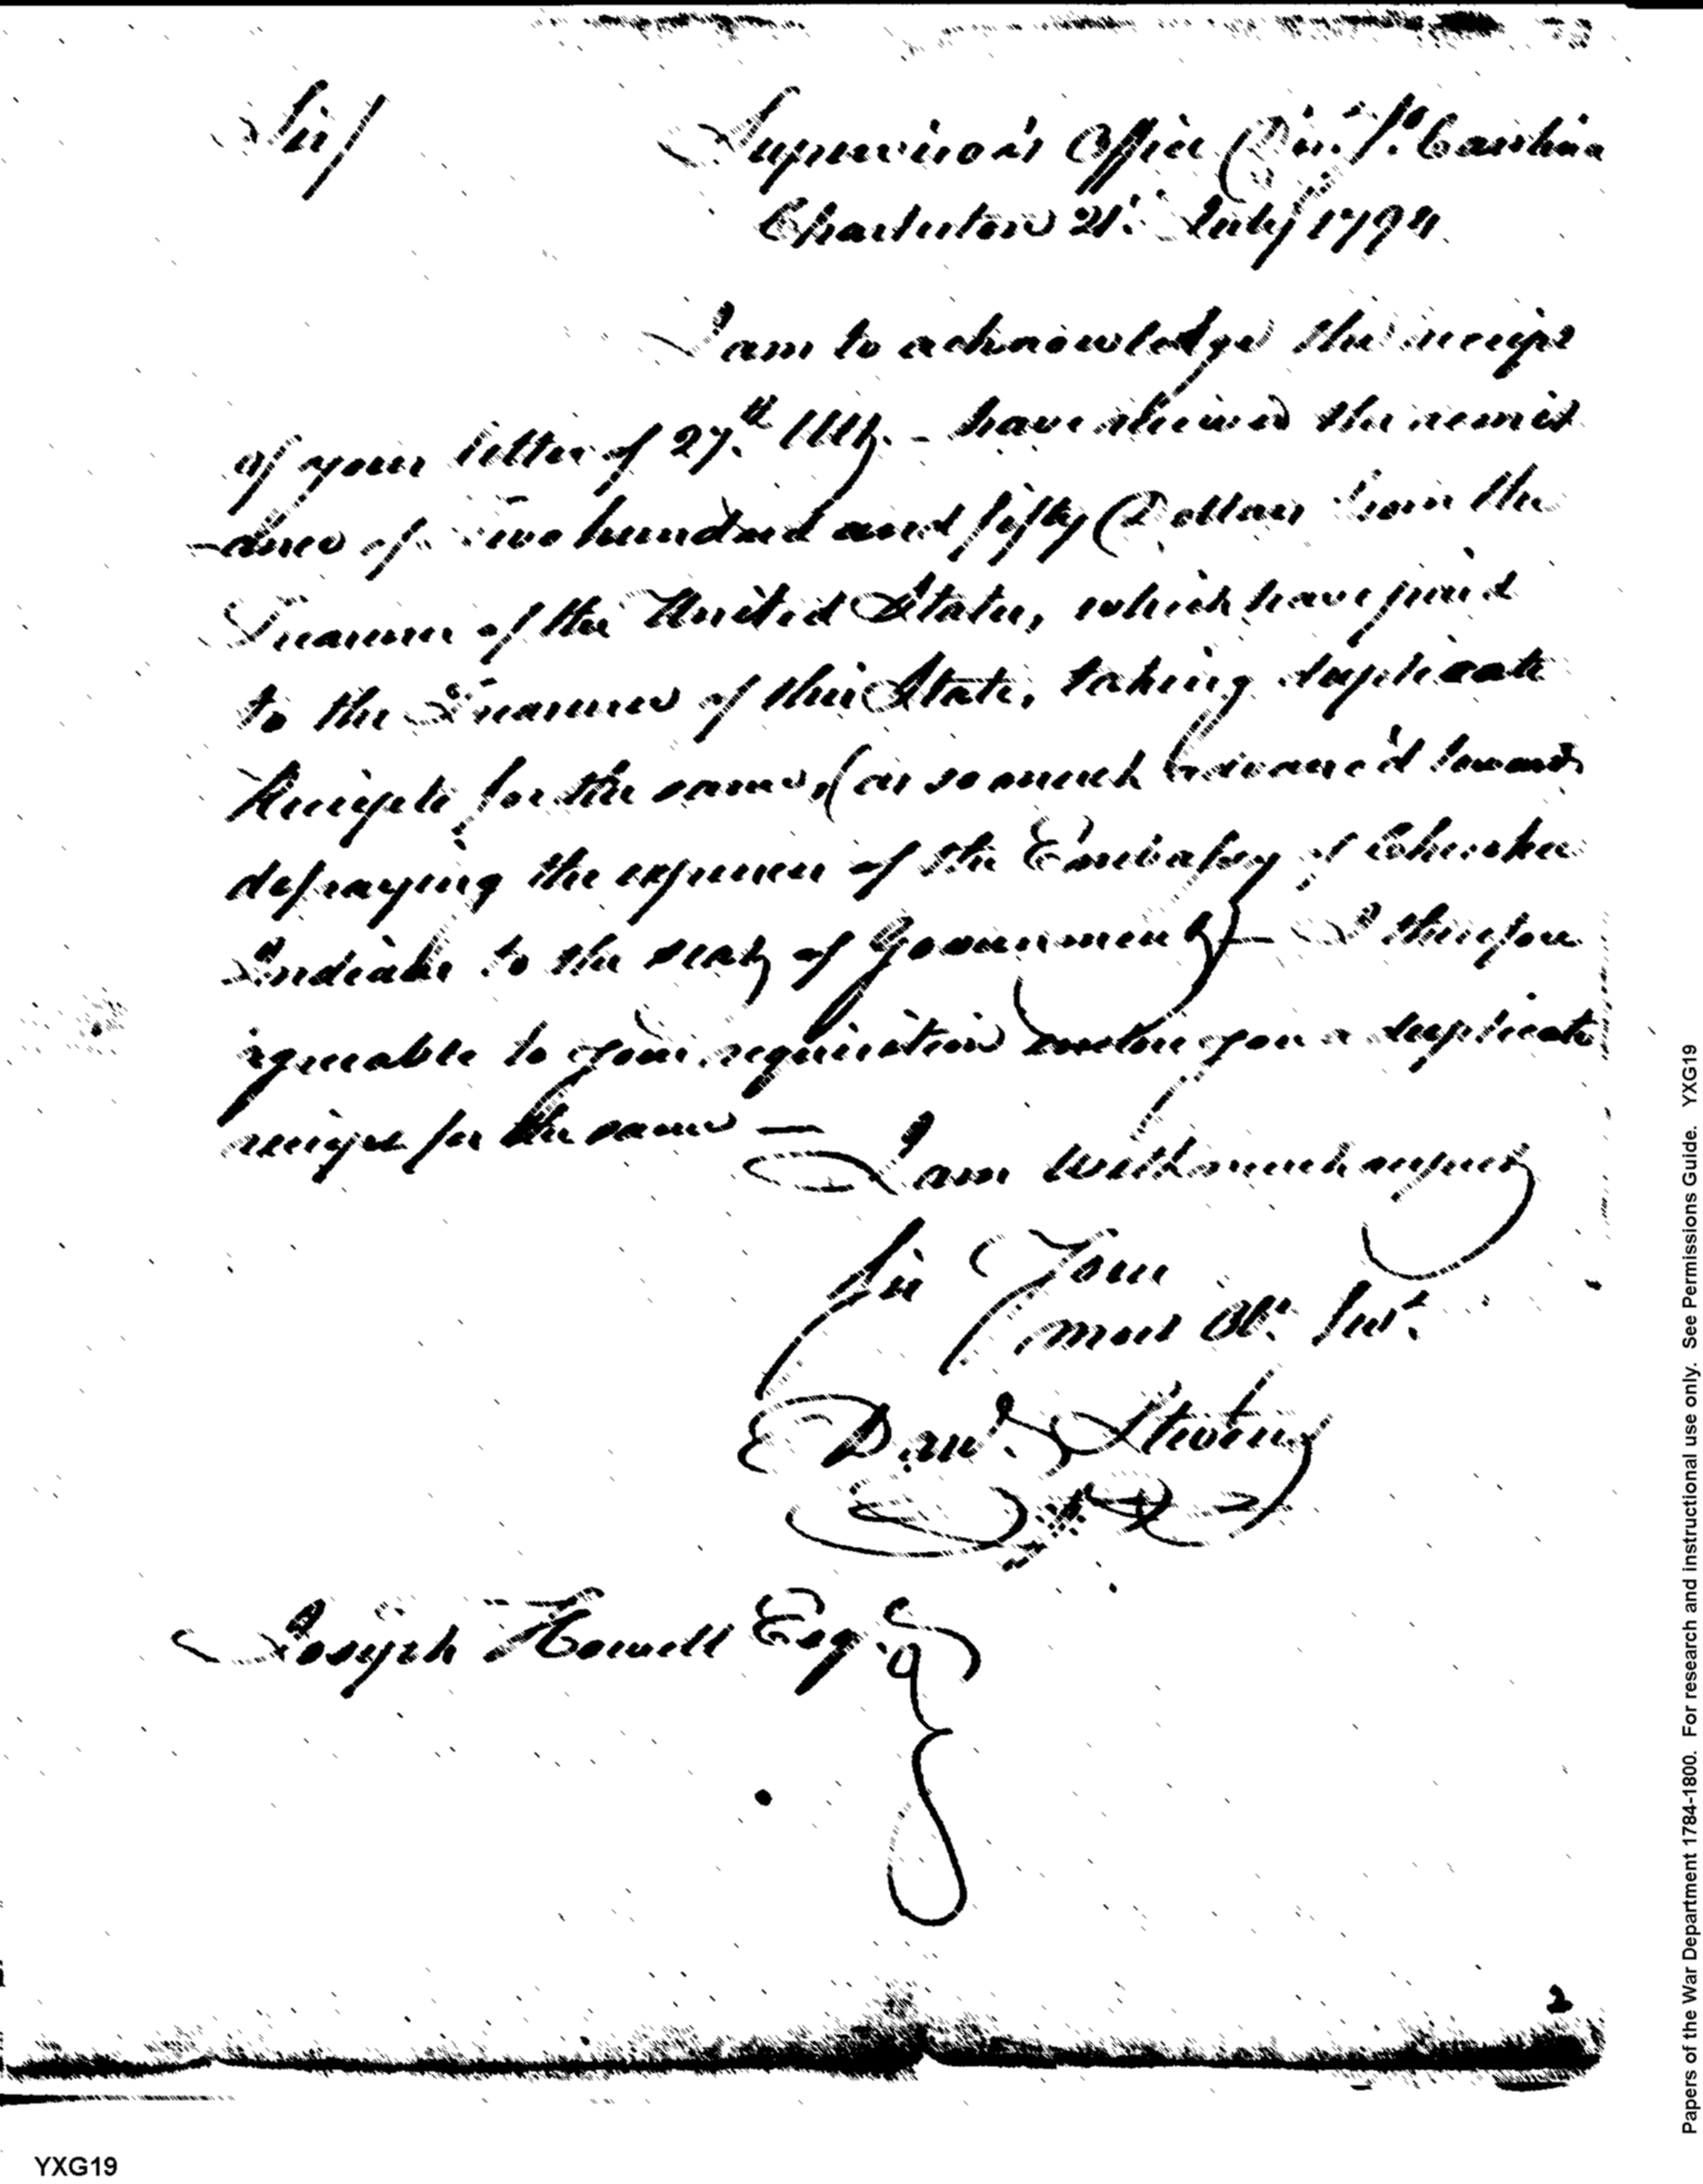 Sir/
Supervisor's Office Dist. So. Carolina
Charleston 21st. July 1794.
I am to acknowledge the receipt
of your letter of 27.th Ult. - have received the remit
-ance of Two hundred and fifty Dollars from the
Treasurer of the United States, which have paid
to the Treasurer of this State, taking duplicate
Receipts for the same, (as so much advanc'd towards
defraying the expences of the Embassy of Cherokee
Indians to the seat of Government) — I therefore
agreeable to your requisition enclose you a duplicate
receipt for the same —
I am with much respect
Sir Your
most Obt. Servt.
Danl. Stevens
Joseph Howell Esq.
2
YXG19
Papers of the War Department 1784-1800. For research and instructional use only. See Permissions Guide. YXG19